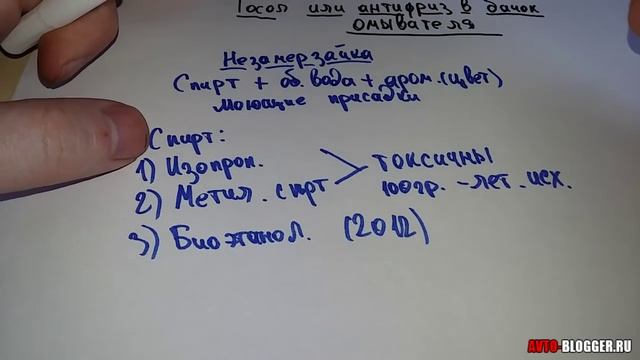 Тосол или антифриз в бачок
омывателя
Незамерзайка
Спирт + об. вода + аром. (цвет)
моющие присадки
Спирт:
1) Изопроп.
2) Метил. спирт
токсичны
100гр. - лет. исх.
3) Биоэтанол. (2012)
AVTO-BLOGGER.RU